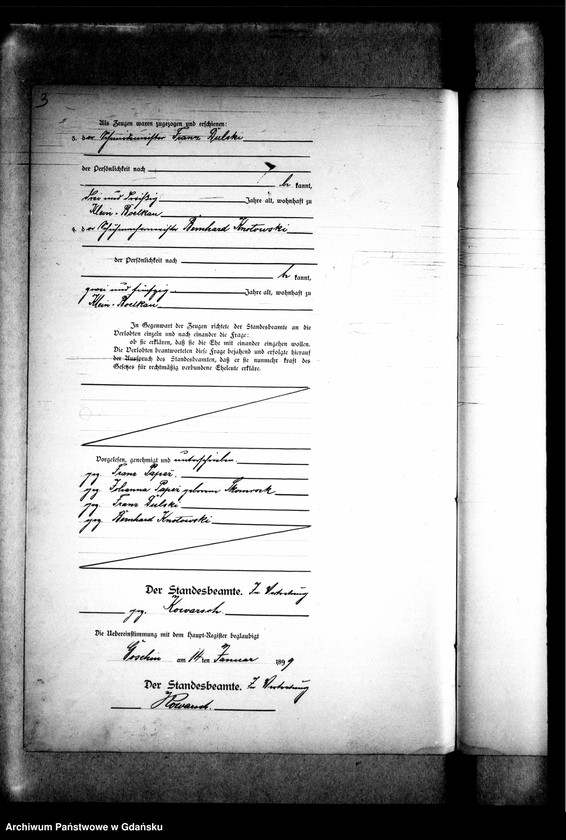 3
Als Zeugen waren zugezogen und erschienen:
3. der Schmiedemeister Franz Dulski
der Persönlichkeit nach
be kannt,
drei und dreißig Jahre alt, wohnhaft zu
Klein-Roelkau
4. der Schuhmachermeister Bernhard Knotowski
der Persönlichkeit nach
be kannt,
zwei und fünfzig Jahre alt, wohnhaft zu
Klein-Roelkau
In Gegenwart der Zeugen richtete der Standesbeamte an die
Verlobten einzeln und nach einander die Frage:
ob sie erklären, daß sie die Ehe mit einander eingehen wollen.
Die Verlobten beantworteten diese Frage bejahend und erfolgte hierauf
der Ausspruch des Standesbeamten, daß er sie nunmehr kraft des
Gesetzes für rechtmäßig verbundene Eheleute erkläre.
Vorgelesen, genehmigt und unterschrieben
gez. Franz Papež.
gez. Johanna Papež geborene
gez. Franz Dulski
gez. Bernhard Knotowski
Der Standesbeamte. In Vertretung
gez. Kowarsch.
Die Uebereinstimmung mit dem Haupt-Register beglaubigt
am 14 ten Januar 1899
Der Standesbeamte. In Vertretung
Kowarsch.
Archiwum Państwowe w Gdańsku